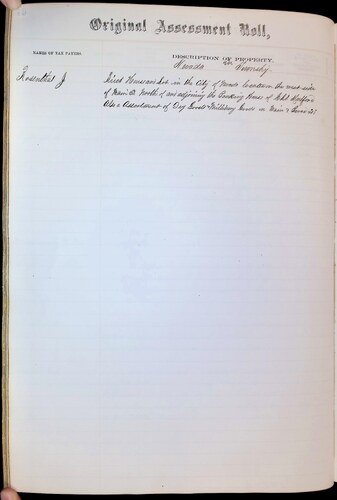 Original Assessment Roll,
NAMES OF TAX PAYERS.
DESCRIPTION OF PROPERTY.
Nevada Township
Rosenthal J
Brick House and Lot in the City of Nevada Located on the west side
of Main St North of and adjoining the Banking House of
Also a Assortment of Dry Goods Millinery Goods on Main &